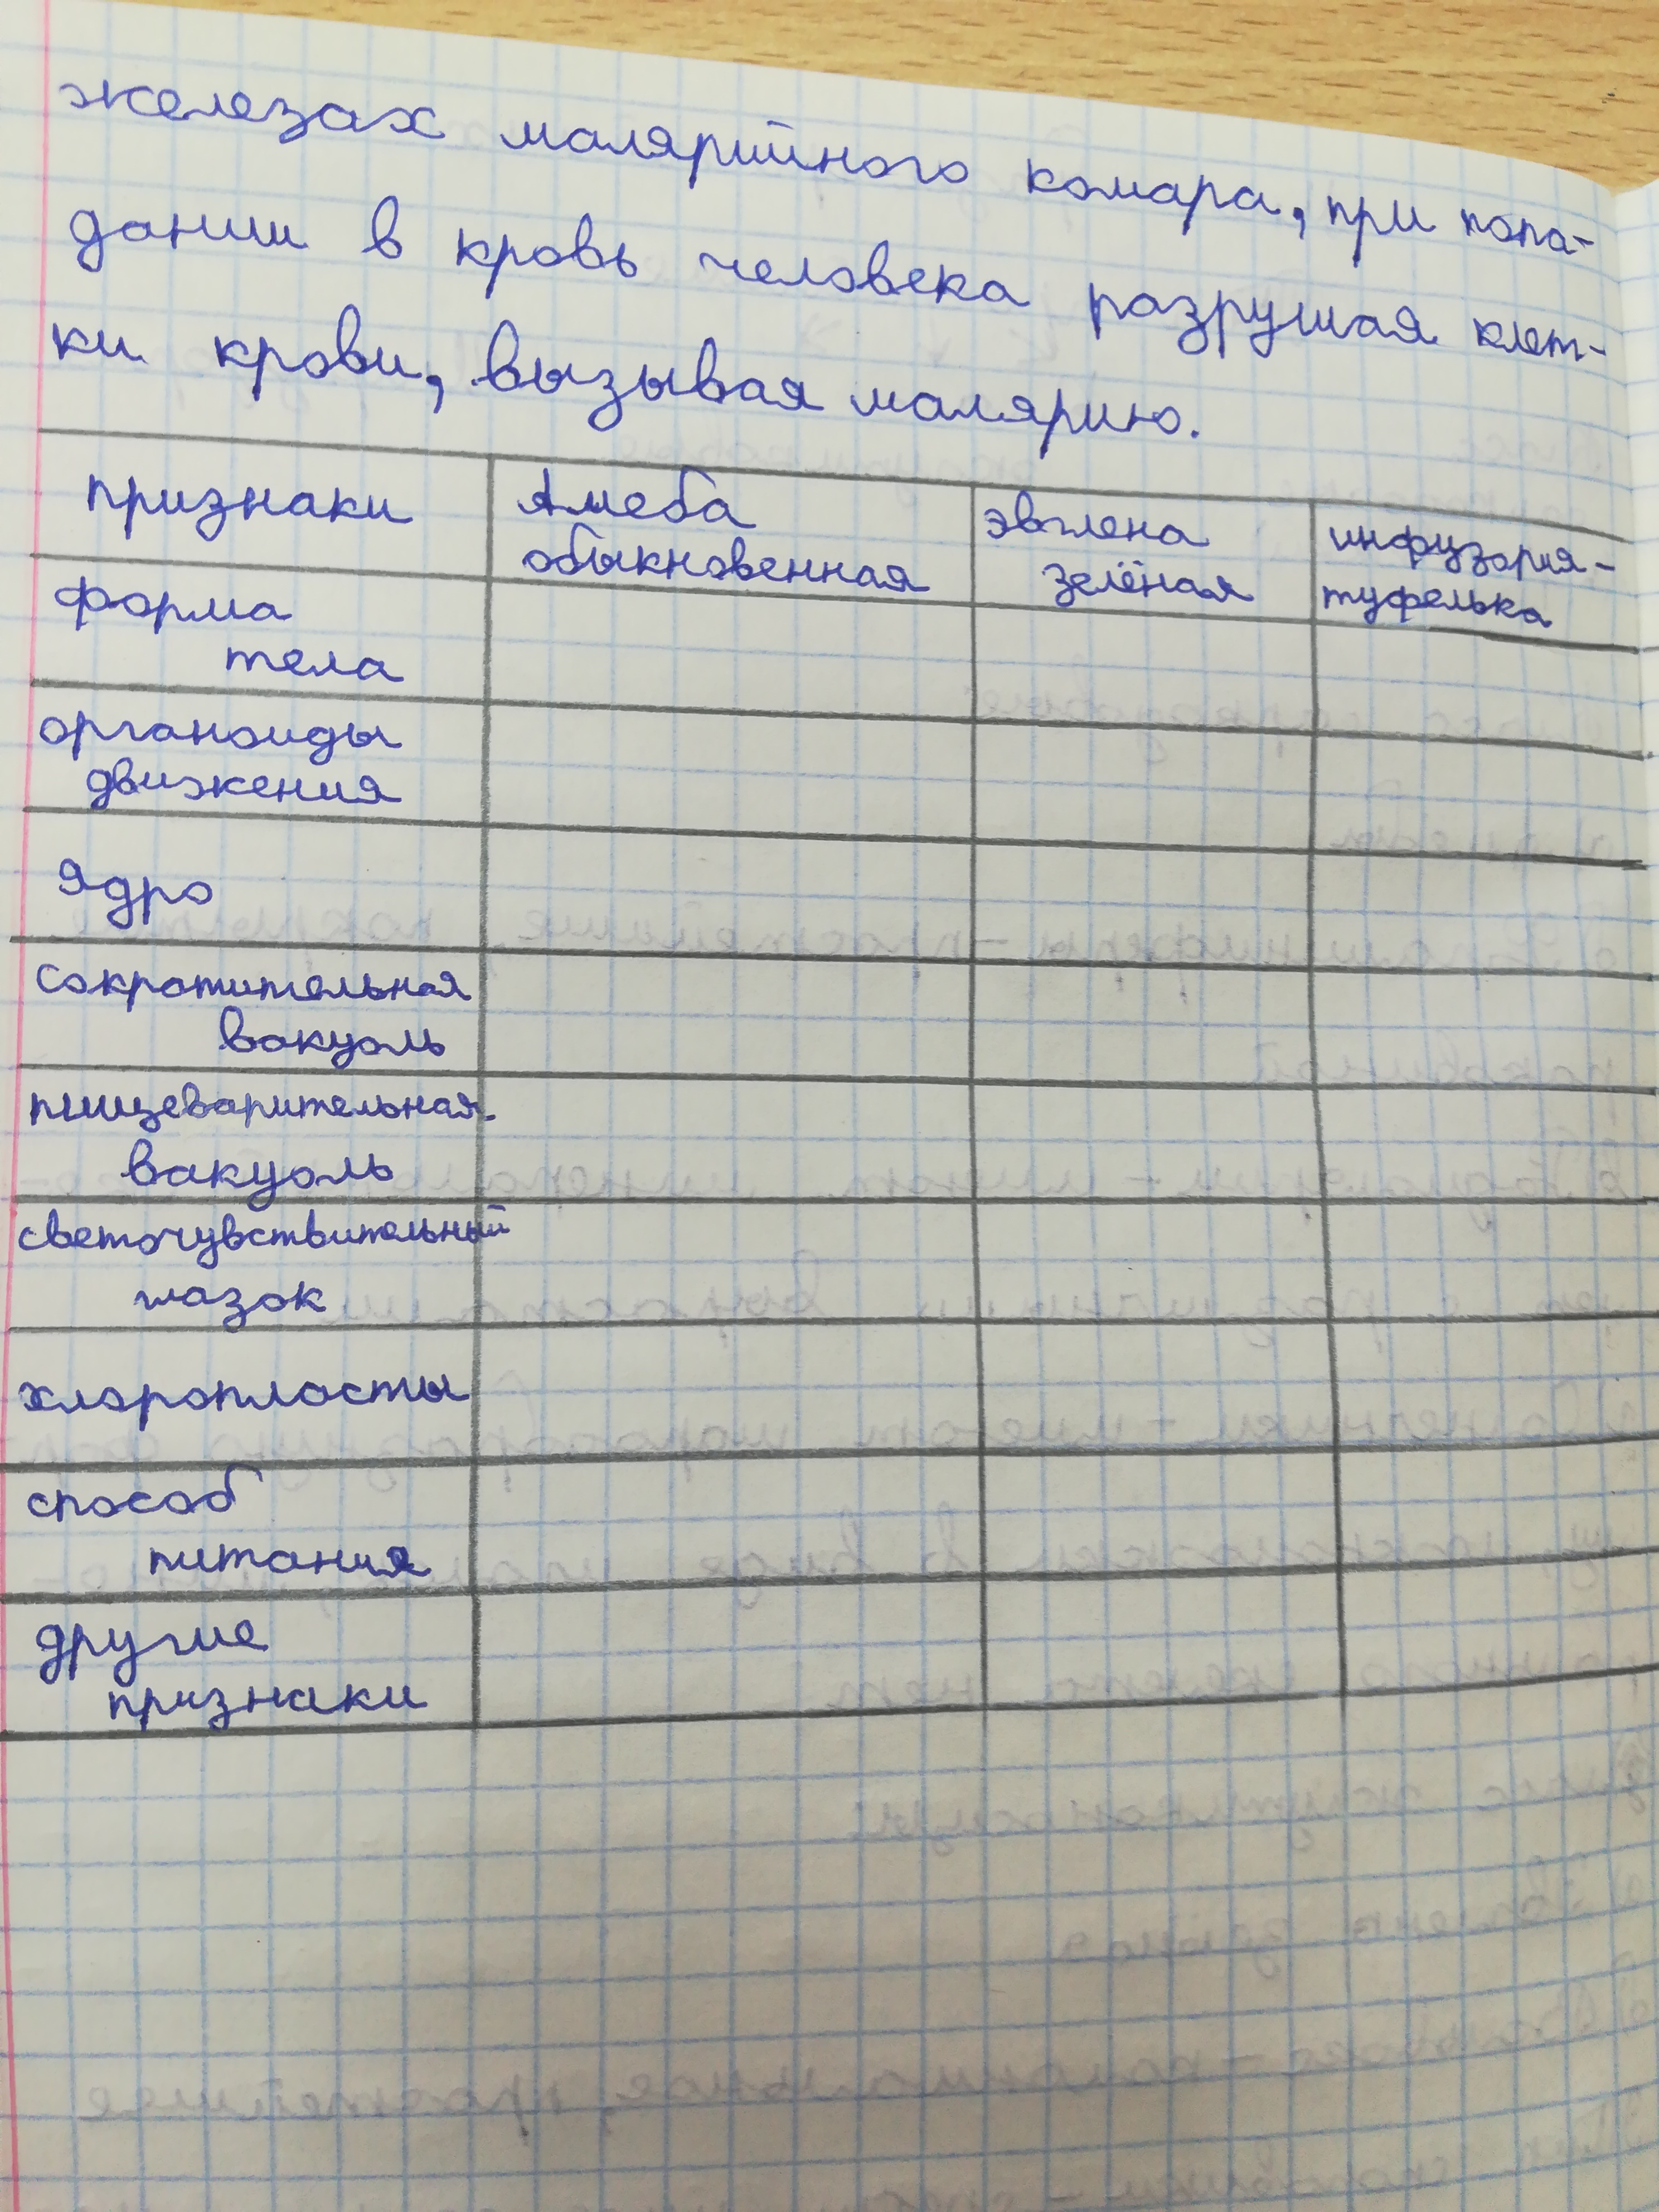 железах малярийного комара, при попа-
дании в кровь человека разрушая клет-
ки крови, вызывая малярию.
признаки
Амеба
обыкновенная
эвглена
зелёная
инфузория-
туфелька
форма
тела
органоиды
движения
ядро
сократительная
вакуоль
пищеварительная
вакуоль
светочувствительный
глазок
хлоропласты
способ
питания
другие
признаки